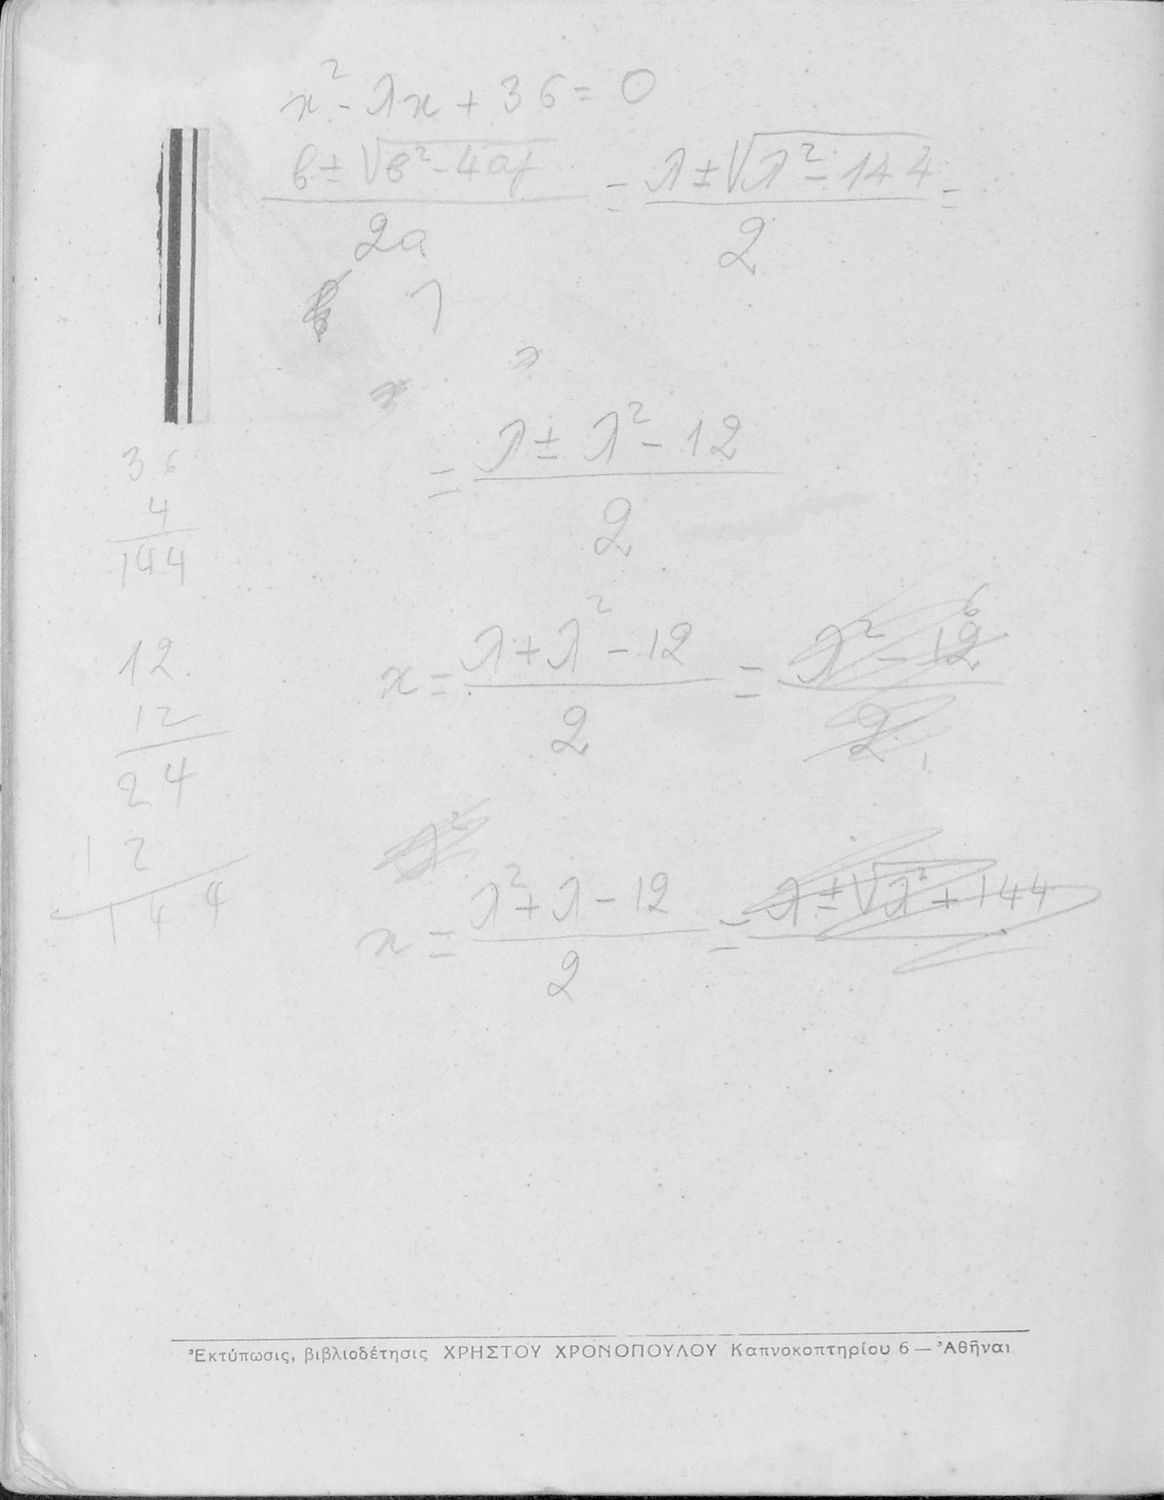 x² - λx + 36 = 0
β ± √β² - 4αγ / 2α = λ ± √λ² - 144 / 2 =
= λ ± λ² - 12 / 2
36
4
144
x = λ + λ² - 12 / 2 = λ² - 12 / 2
12
12
24
12
144
λ²
x = λ² + λ - 12 / 2 = λ ± √λ² + 144
Ἐκτύπωσις, βιβλιοδέτησις ΧΡΗΣΤΟΥ ΧΡΟΝΟΠΟΥΛΟΥ Καπνοκοπτηρίου 6 — Ἀθῆναι